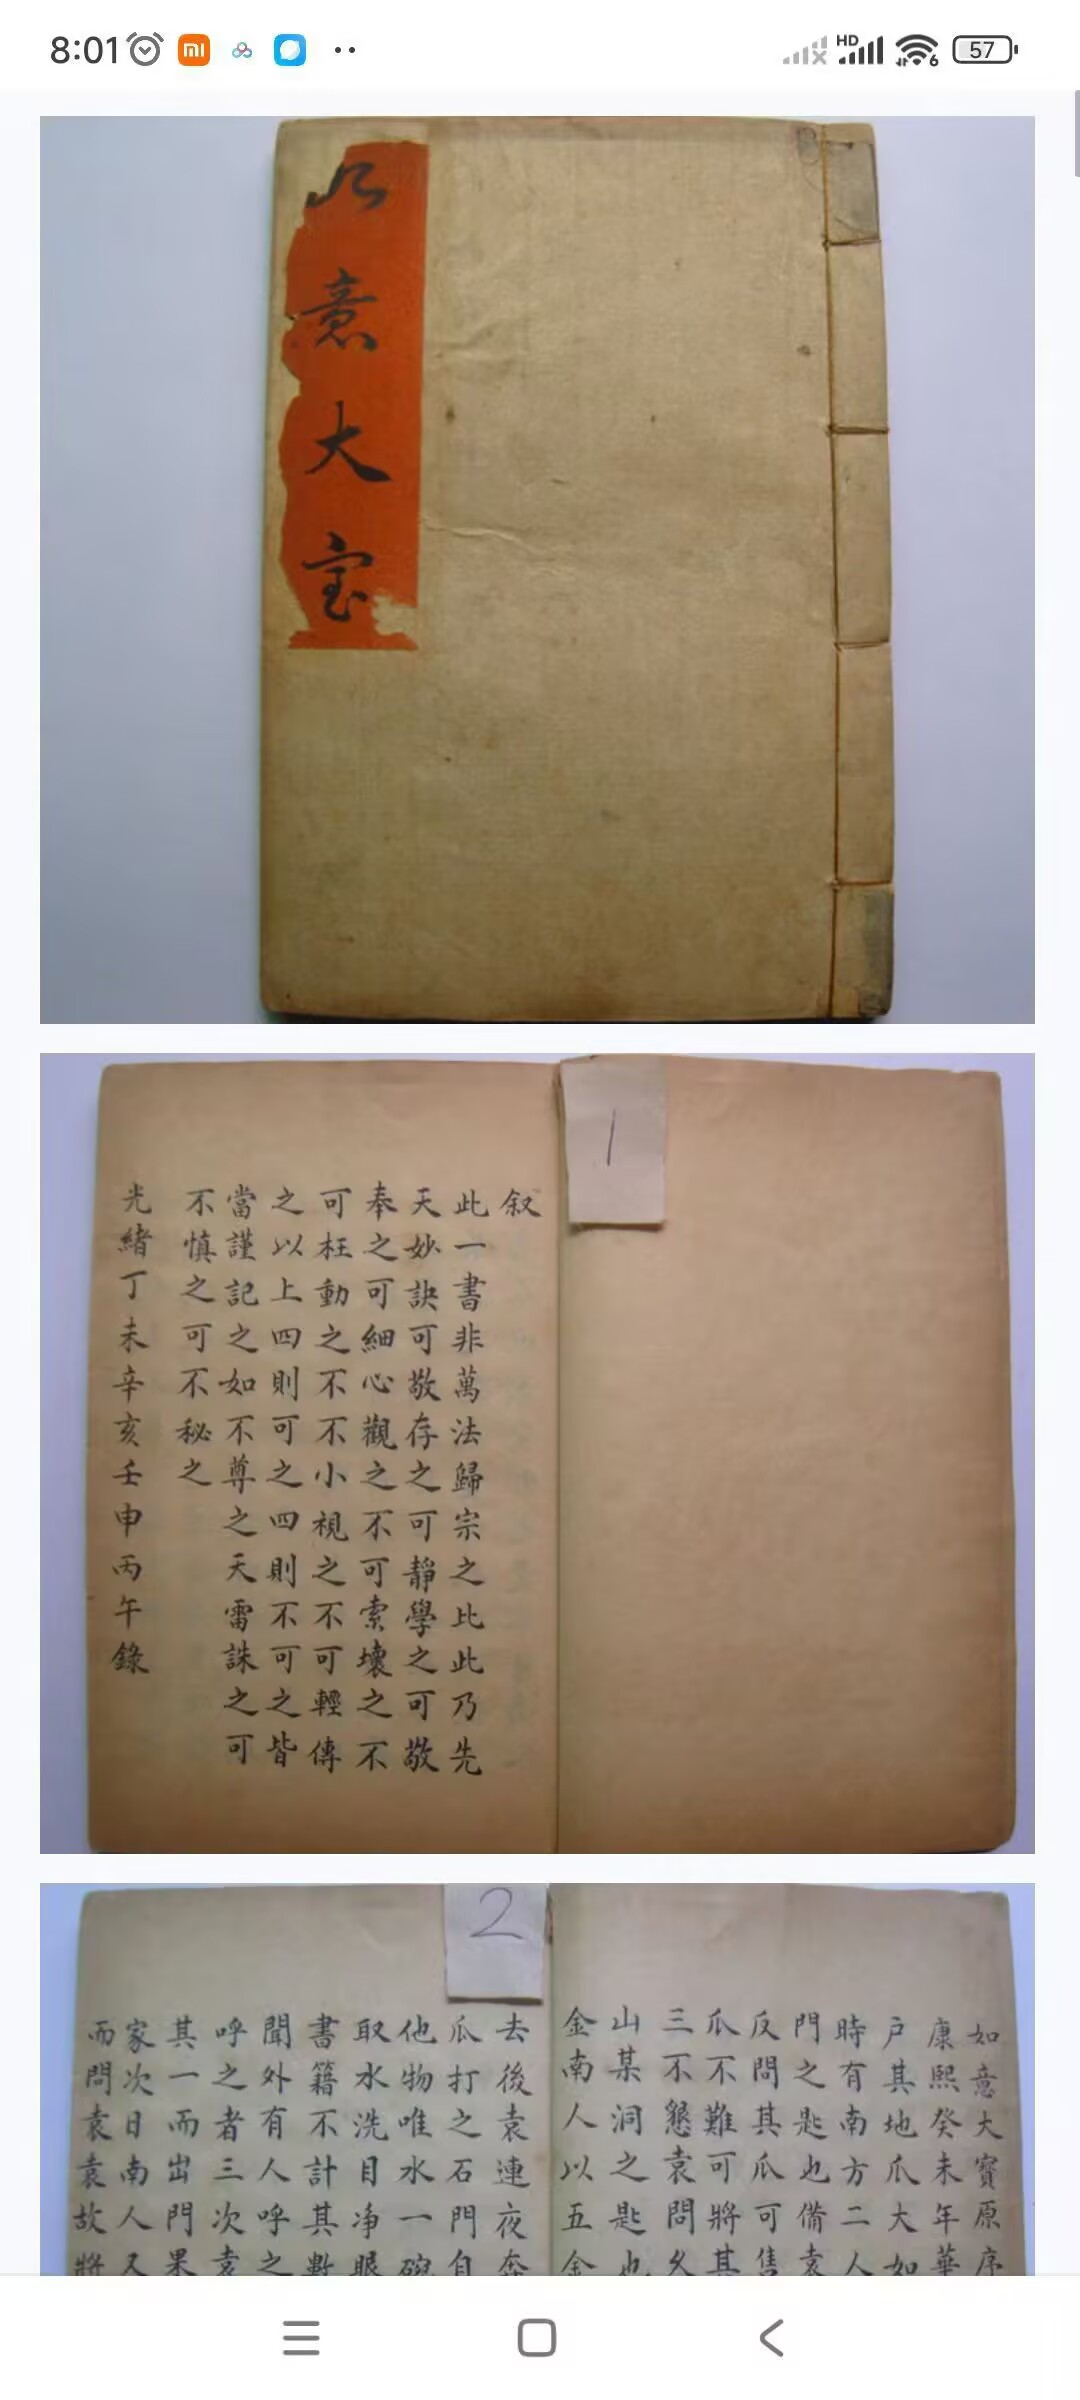 8:01
mi
HD
6
57
如意大宝
1
叙
此一書非萬法歸宗之比此乃先
天妙訣可敬存之可靜學之可敬
奉之可細心觀之不可索壞之不
可枉動之不不小視之不可輕傳
之以上四則可之四則不可之皆
當謹記之如不尊之天雷誅之可
不慎之可不秘之
光緒丁未辛亥壬申丙午錄
2
如意大寶原序
康熙癸未年華
户其地爪大如
時有南方二人
門之匙也備袁
反問其爪可售
爪不難可將其
三不懇袁問久
山某洞之匙也
金南人以五金
去後袁連夜奔
瓜打之石門自
他物唯水一碗
取水洗目净眼
書籍不計其數
聞外有人呼之
呼之者三次袁
其一而出門果
家次日南人又
而問袁袁故將